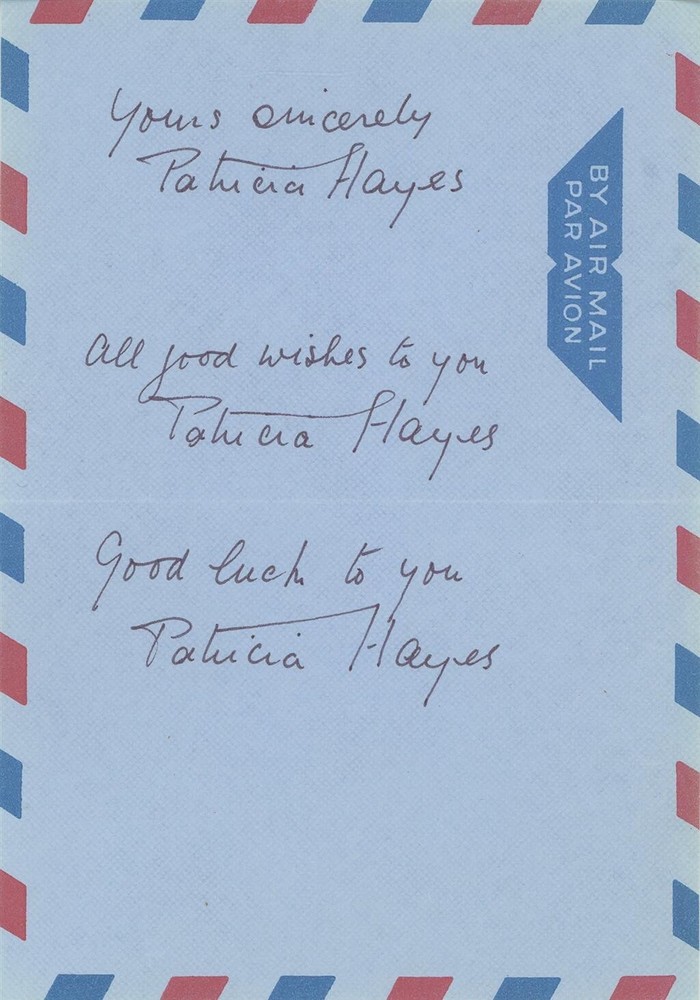 Yours sincerely
Patricia Hayes
BY AIR MAIL
PAR AVION
All good wishes to you
Patricia Hayes
Good luck to you
Patricia Hayes